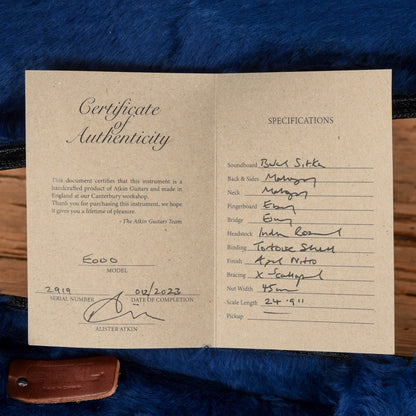 Certificate
of
Authenticity
This document certifies that this instrument is a
handcrafted product of Atkin Guitars and made in
England at our Canterbury workshop.
Thank you for purchasing this instrument, we hope
it gives you a lifetime of pleasure.
- The Atkin Guitars Team
E000
MODEL
2919 012/2023
SERIAL NUMBER DATE OF COMPLETION
ALISTER ATKIN
SPECIFICATIONS
Soundboard Sitka
Back & Sides Mahogany
Neck Mahogany
Fingerboard Ebony
Bridge Ebony
Headstock Indian
Binding Tortoise Shell
Finish Nitro
Bracing X Scalloped
Nut Width 45mm
Scale Length 24.9"
Pickup —